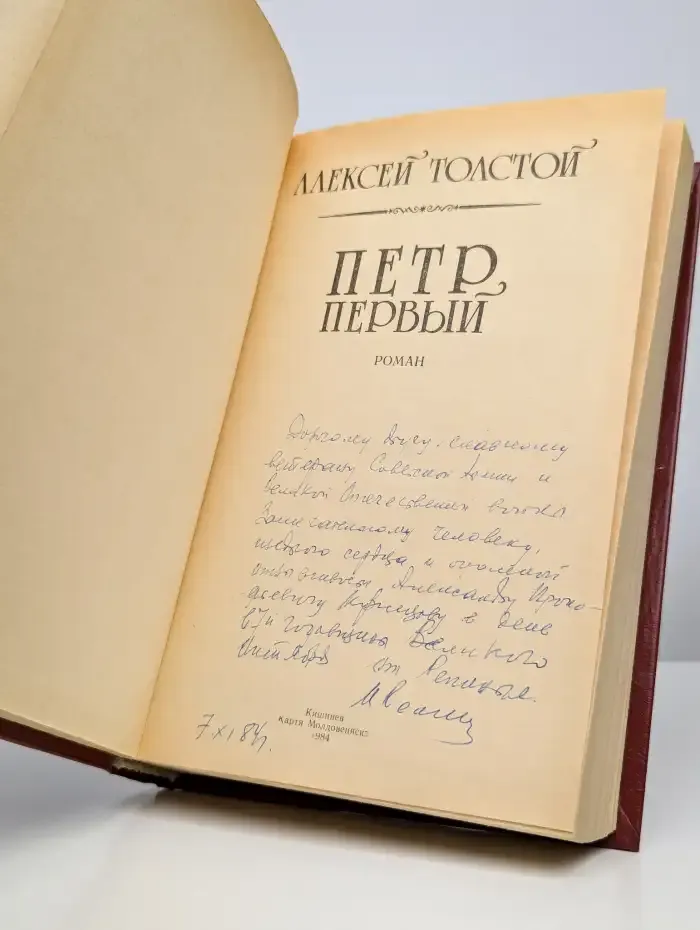 АЛЕКСЕЙ ТОЛСТОЙ
ПЕТР
ПЕРВЫЙ
РОМАН
Дорогому другу, славному
ветерану Советской Армии и
Великой Отечественной войны
Замечательному человеку,
щедрого сердца и огромной
Александру Проко-
фьевичу Кузнецову в день
67й годовщины Великого
Октября от
7 XI 84г.
Кишинев
Картя Молдовеняскэ
1984